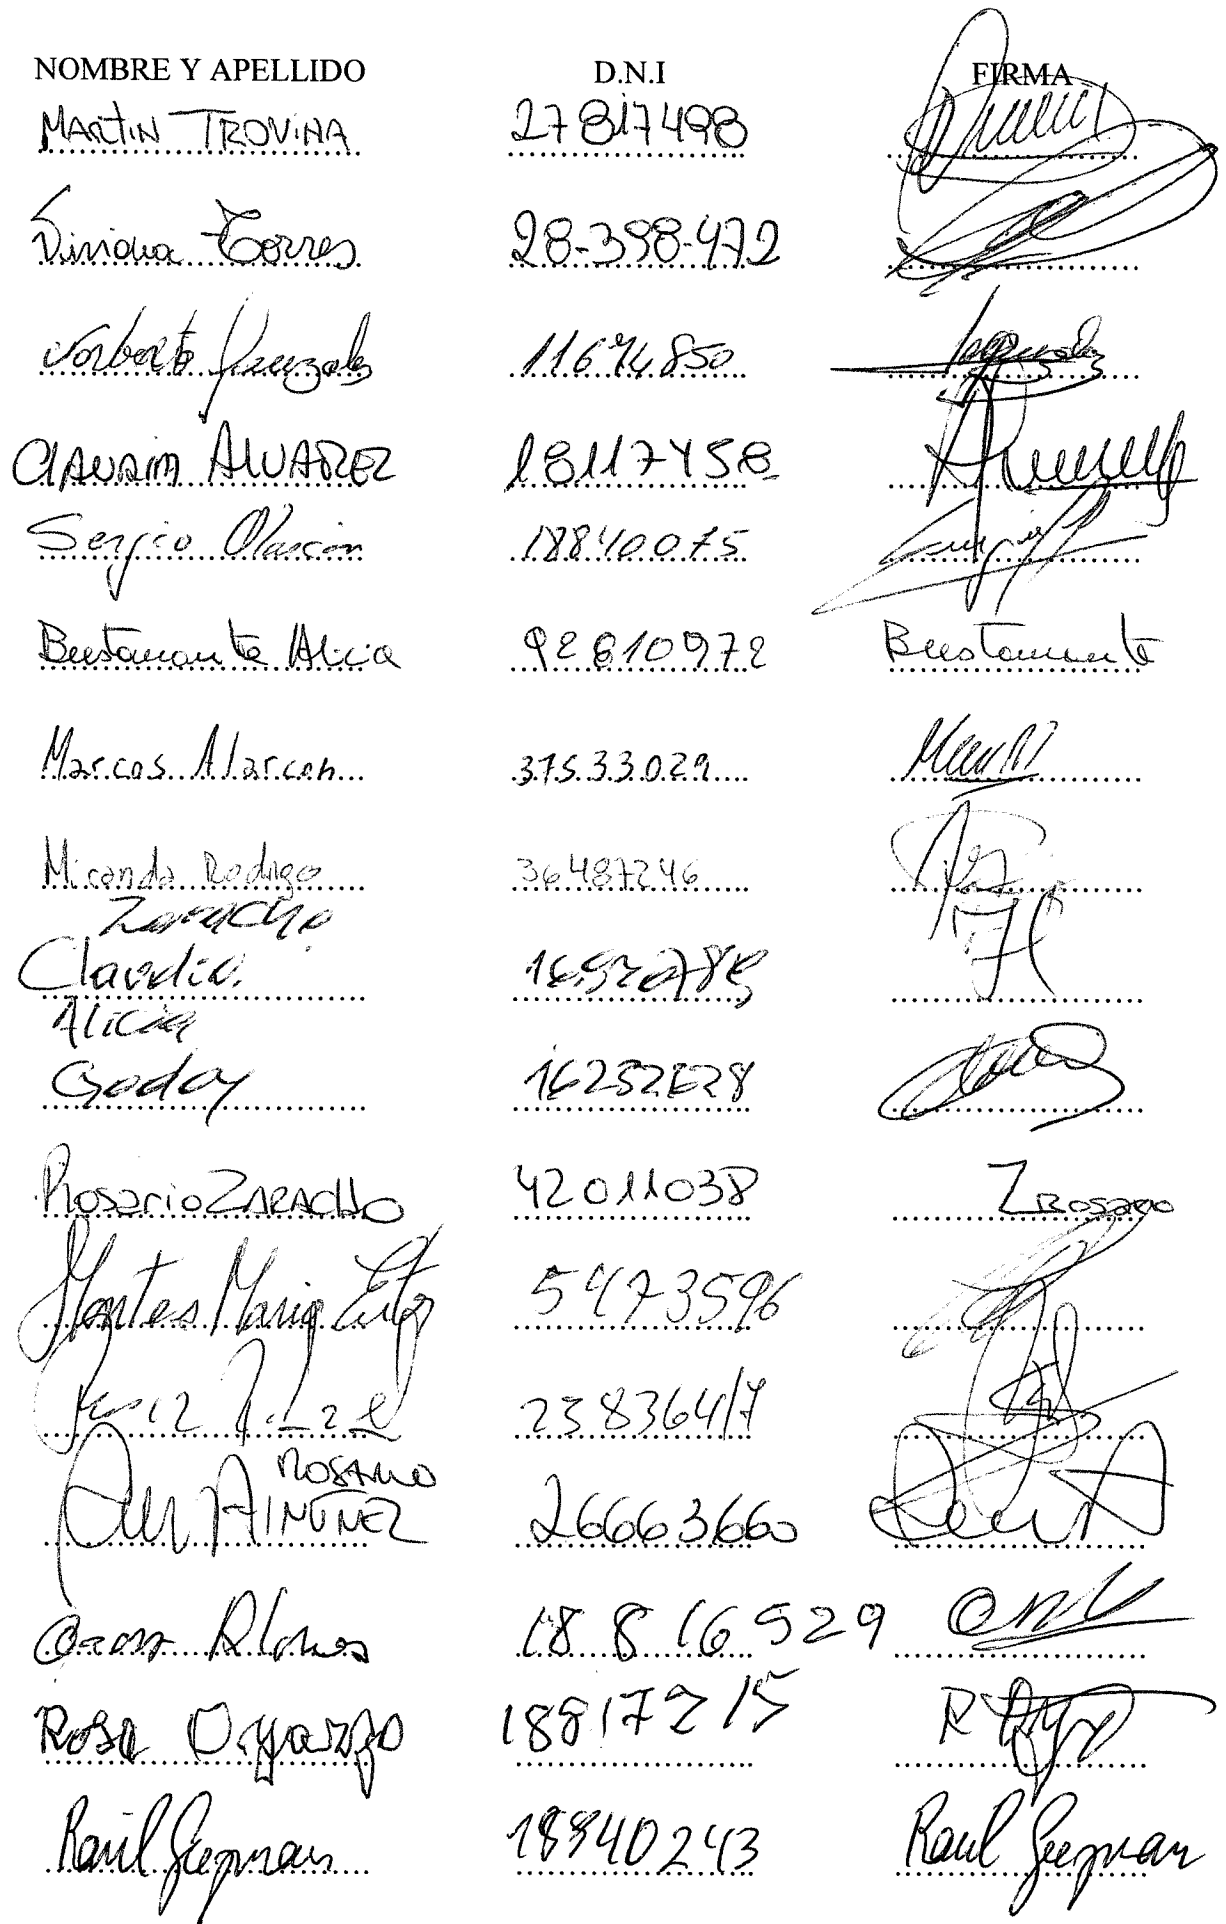 NOMBRE Y APELLIDO D.N.I FIRMA
MARTIN TROVIHA 27817498
Viviana Torres 28-398-472
Norberto Gonzalez 11674850
ClAUDIA AlVAREZ 18117458
Sergio Alarcon 18840075
Bustamante Alicia 92810972 Bustamante
Marcos Alarcon 37533029
Miranda Rodrigo 36487246
Zaracho
Claudio.
Alicia
Godoy
Rosario ZARACHO 42011038 Z ROSARIO
Montes Maria Ester 5473596
23836417
ROSARIO
26663660
18 8 16 529
Rosa Oyarzo 18817215
Raúl Guzman 18840243 Raul Guzman